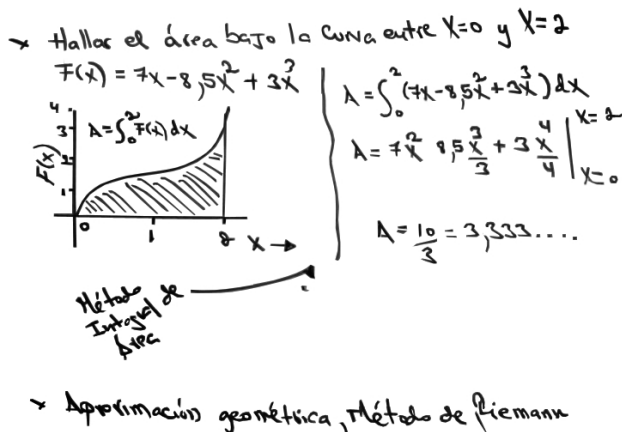 Hallar el área bajo la curva entre X=0 y X=2
F(x) = 7x-8,5x² + 3x³
4
3
2
1
F(x)
A=∫₀² F(x) dx
0 1 2 X →
Método
Integral de
Área
A=∫₀² (7x-8,5x² + 3x³) dx
A = 7x² 8,5 x³/3 + 3 x⁴/4 | X=2 X=0
A = 10/3 = 3,333....
Aproximación geométrica, Método de Riemann